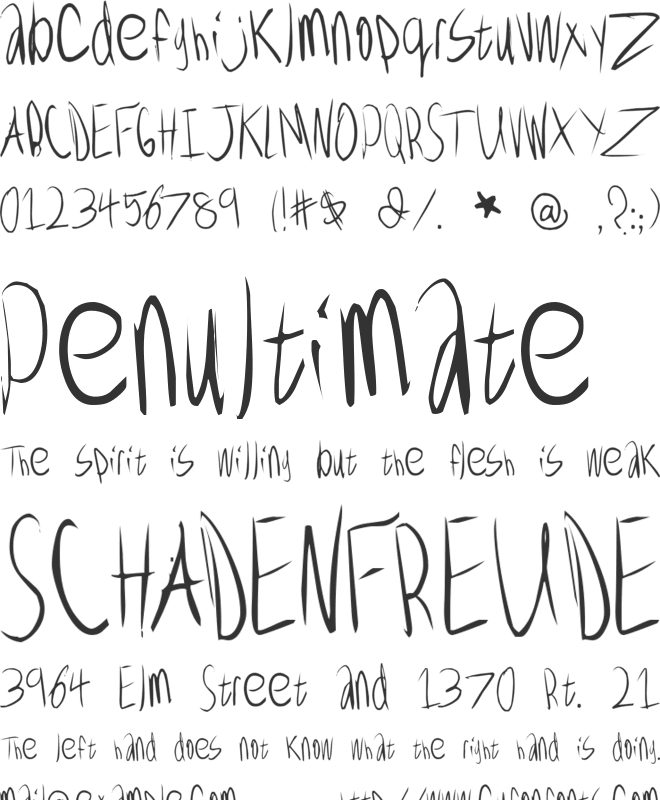 abCdefghijKlmnopqrStuvwxyZ
ABCDEFGHIJKLMNOPQRSTUVWXYZ
0123456789 (!#$ & /. * @ ,?:;)
Penultimate
The spirit is willing but the flesh is weak
SCHADENFREUDE
3964 Elm Street and 1370 Rt. 21
The left hand does not know what the right hand is doing.
mail@example.com